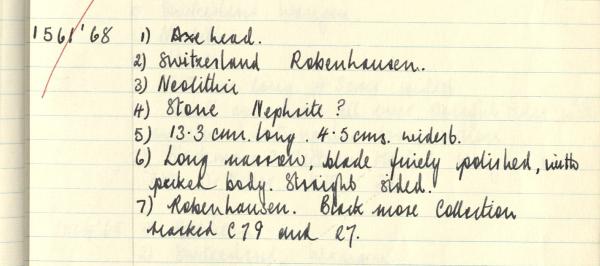 1561'68 1) Axe head.
2) Switzerland Robenhausen.
3) Neolithic
4) Stone Nephrite?
5) 13.3 cms. long. 4.5 cms. widest.
6) Long narrow, blade finely polished, with
pecked body. Straight sided.
7) Robenhausen. Blackmore Collection
marked C79 and 27.